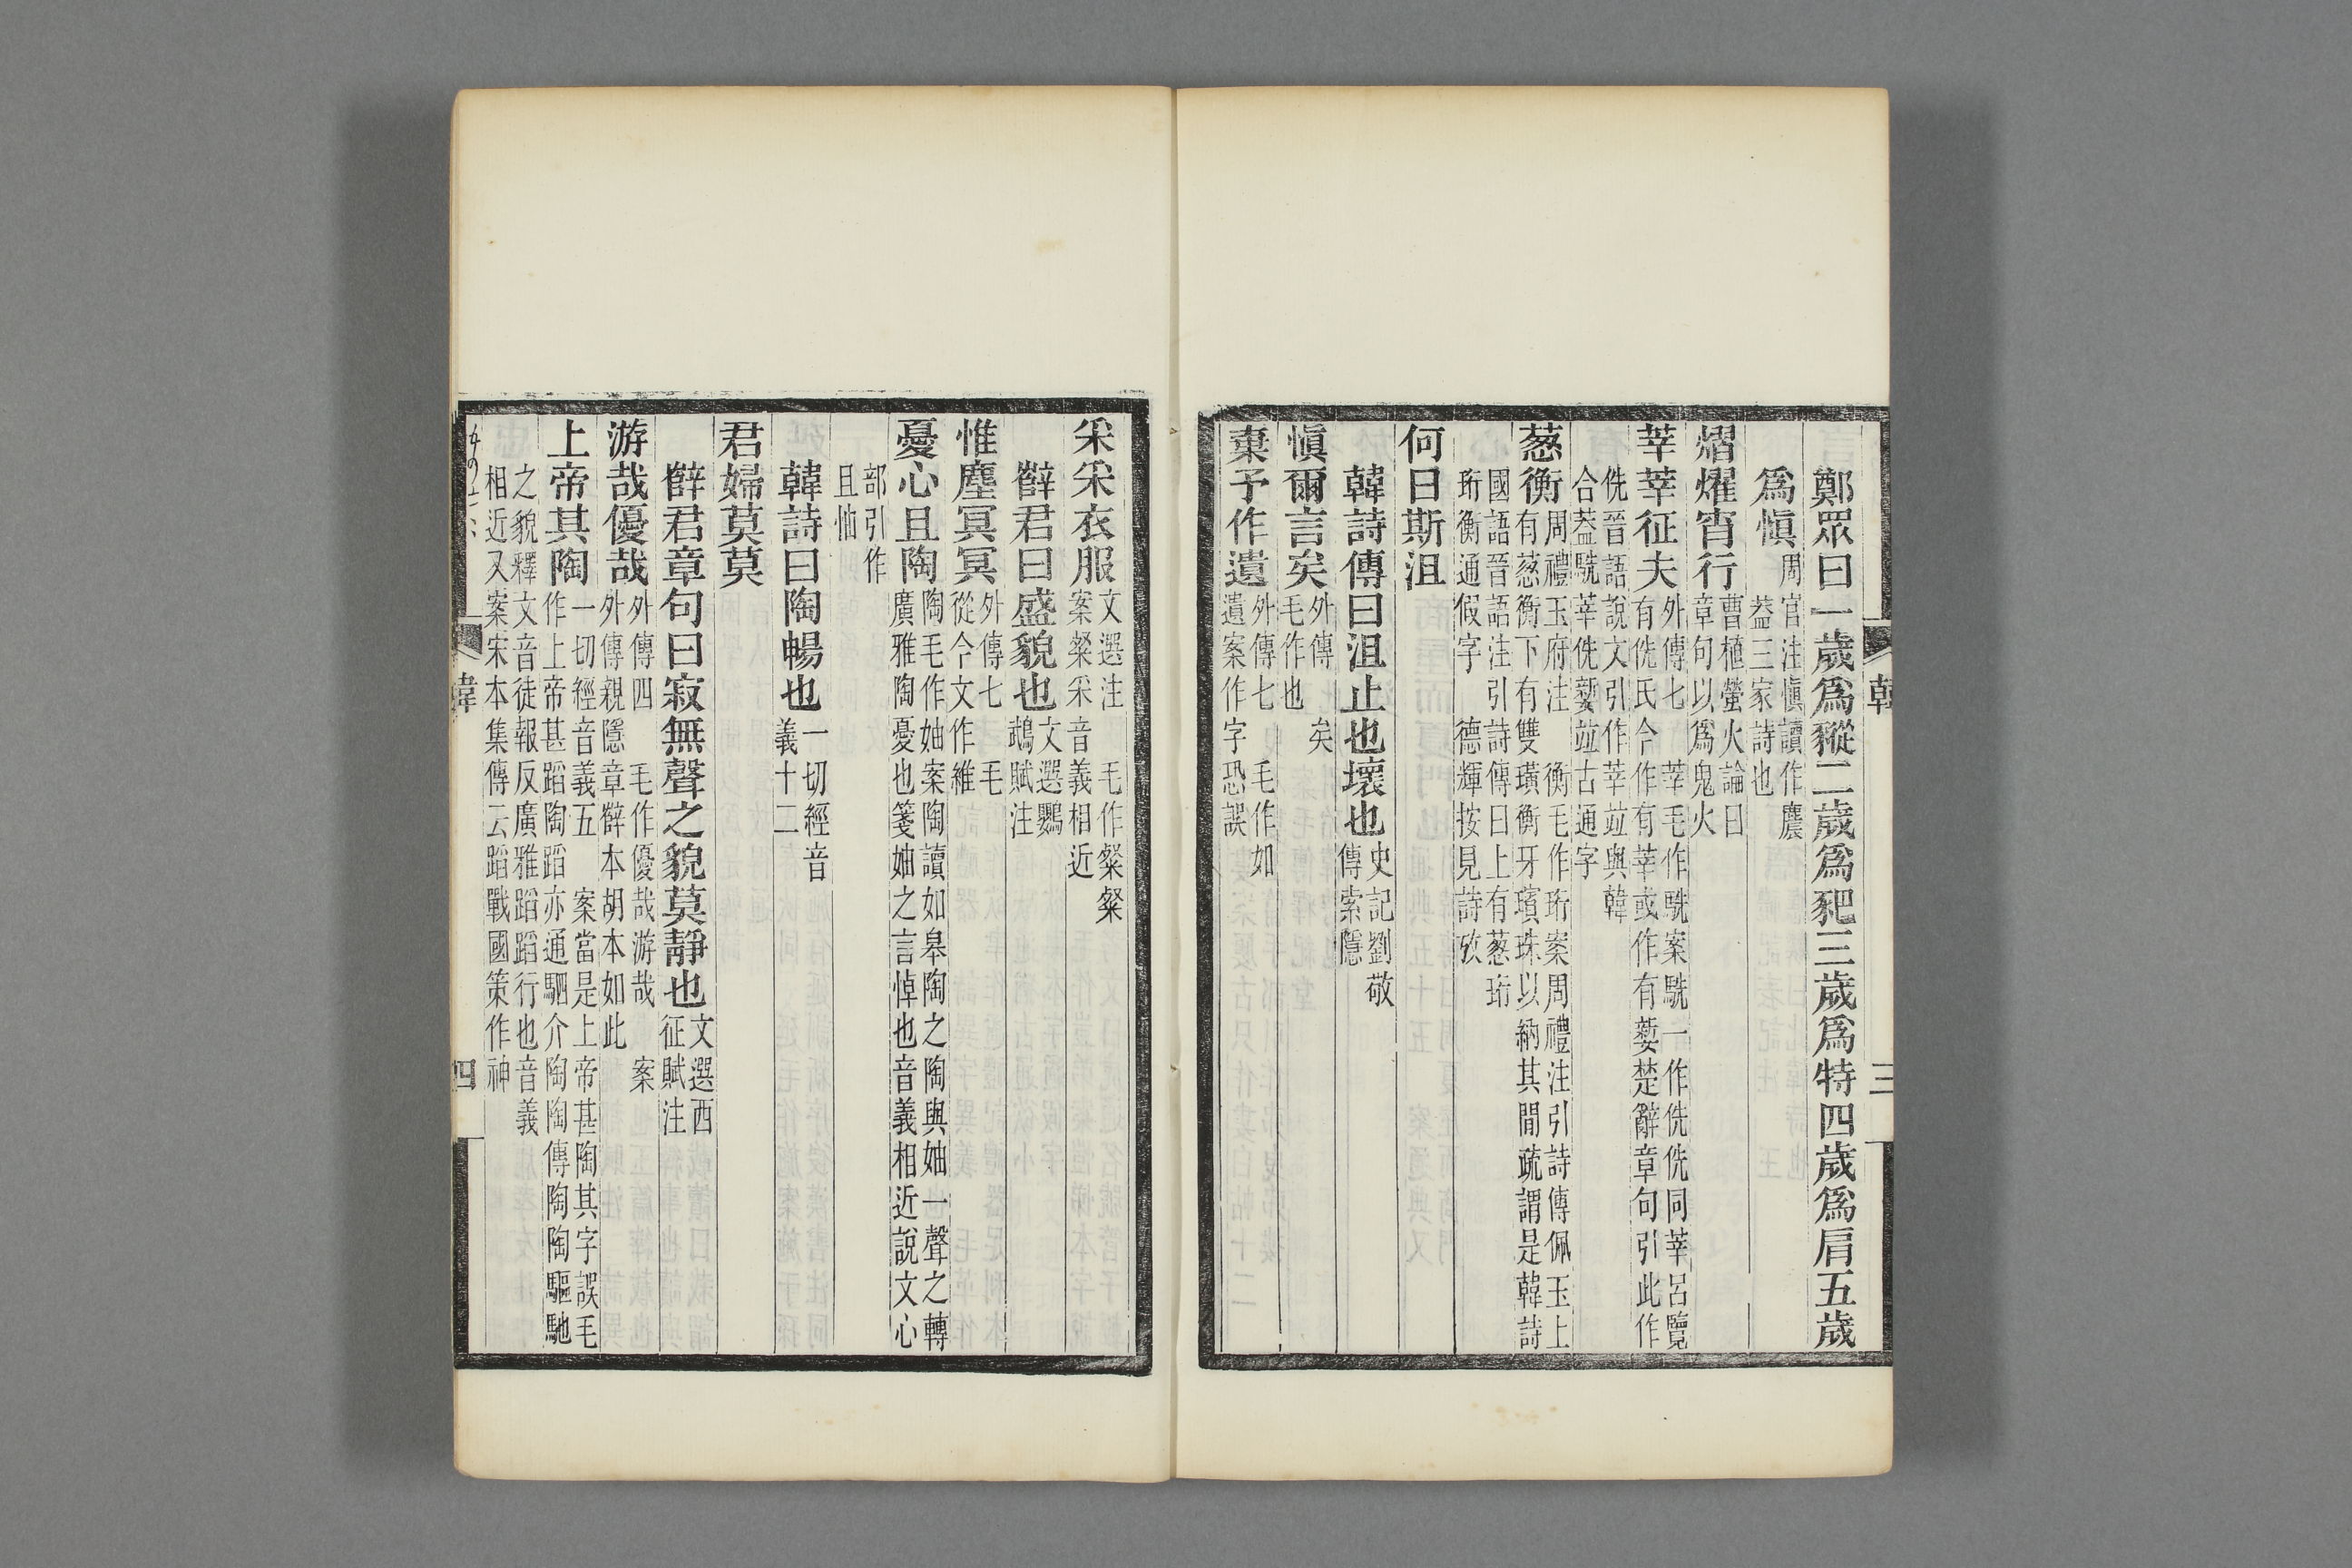 鄭眾曰一歲爲豵二歲爲豝三歲爲特四歲爲肩五歲
爲愼周官注愼讀作麎
葢三家詩也
熠燿宵行曹植螢火論曰
章句以爲鬼火
莘莘征夫外傳七 莘毛作駪案駪一作侁侁同莘呂覽
有侁氏今作有莘或作有㜪楚辭章句引此作
侁晉語說文引作莘竝與韓
合葢駪莘侁㜪竝古通字
葱衡周禮玉府注 衡毛作珩案周禮注引詩傳佩玉上
有葱衡下有雙璜衡牙璸珠以納其間疏謂是韓詩
國語晉語注引詩傳曰上有葱珩
珩衡通假字 德輝按見詩攷
何日斯沮
韓詩傳曰沮止也壞也史記劉敬
傳索隱
愼爾言矣外傳 矣
毛作也
棄予作遺外傳七 毛作如
遺案作字恐誤
韓 三
采采衣服文選注 毛作粲粲
案粲采音義相近
辥君曰盛貌也文選鸚
鵡賦注
惟塵冥冥外傳七 毛
從今文作維
憂心且陶陶毛作妯案陶讀如皋陶之陶與妯一聲之轉
廣雅陶憂也箋妯之言悼也音義相近說文心
部引作
且怞
韓詩曰陶暢也一切經音
義十二
君婦莫莫
辥君章句曰寂無聲之貌莫靜也文選西
征賦注
游哉優哉外傳四 毛作優哉游哉 案
外傳親隱章辥本胡本如此
上帝其陶一切經音義五 案當是上帝甚陶其字誤毛
作上帝甚蹈陶蹈亦通駟介陶陶傳陶陶驅馳
之貌釋文音徒報反廣雅蹈蹈行也音義
相近又案宋本集傳云蹈戰國策作神
韓 四